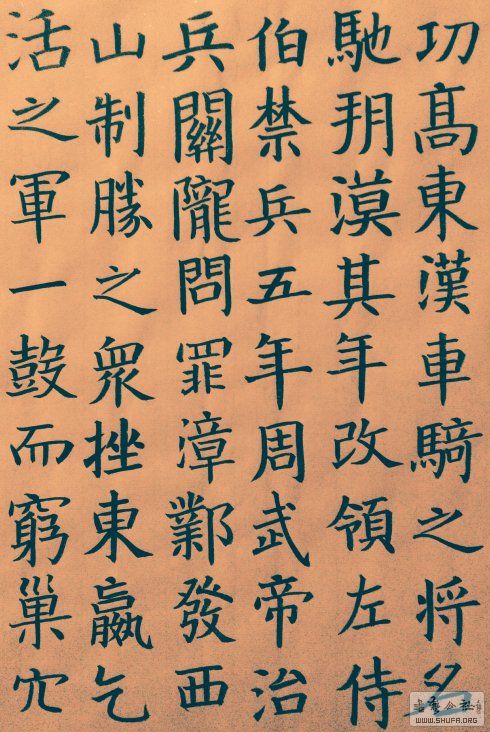 功高東漢車騎之将名
馳朔漠其年改領左侍
伯禁兵五年周武帝治
兵關隴問罪漳鄴發西
山制勝之衆挫東嬴乞
活之軍一鼓而窮巢穴
WWW.SHUFA.ORG